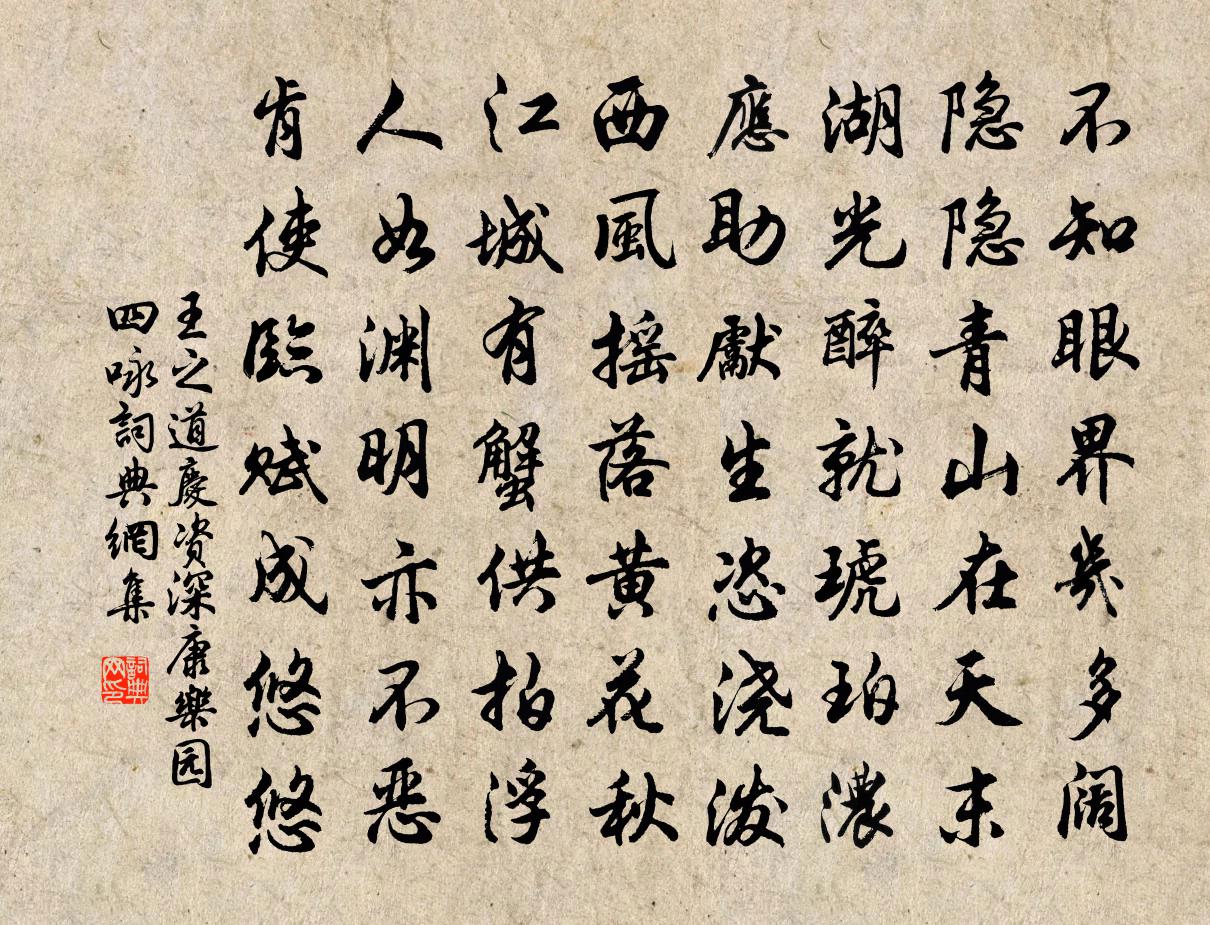 不知眼界幾多阔
隐隐青山在天末
湖光醉就琥珀濃
應助獻生恣浇泼
西風摇落黄花秋
江城有蟹供拍浮
人如渊明亦不惡
肯使臨赋成悠悠
王之道慶资深康樂园
四咏詞典網集
詞典网印